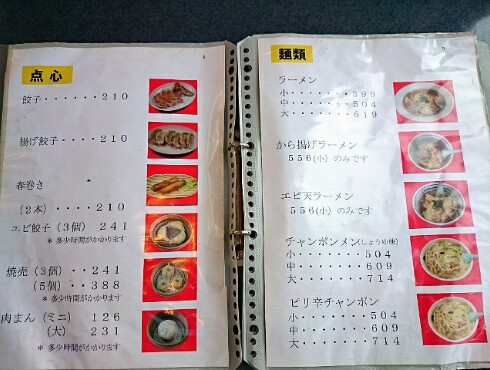 点心
餃子・・・・・・２１０
揚げ餃子・・・・２１０
春巻き
（２本）・・・・２１０
エビ餃子（３個）２４１
＊多少時間がかかります
焼売（３個）・・２４１
（５個）・・３８８
＊多少時間がかかります
肉まん（ミニ）１２６
（大）２３１
＊多少時間がかかります
麺類
ラーメン
小・・・・・・・３９９
中・・・・・・・５０４
大・・・・・・・６１９
から揚げラーメン
５５６(小）のみです
エビ天ラーメン
５５６(小）のみです
チャンポンメン(しょうゆ味)
小・・・・・・５０４
中・・・・・・６０９
大・・・・・・７１４
ピリ辛チャンポン
小・・・・・・５０４
中・・・・・・６０９
大・・・・・・７１４